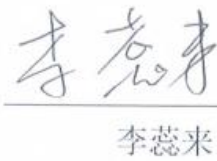 李蕊来
李蕊来